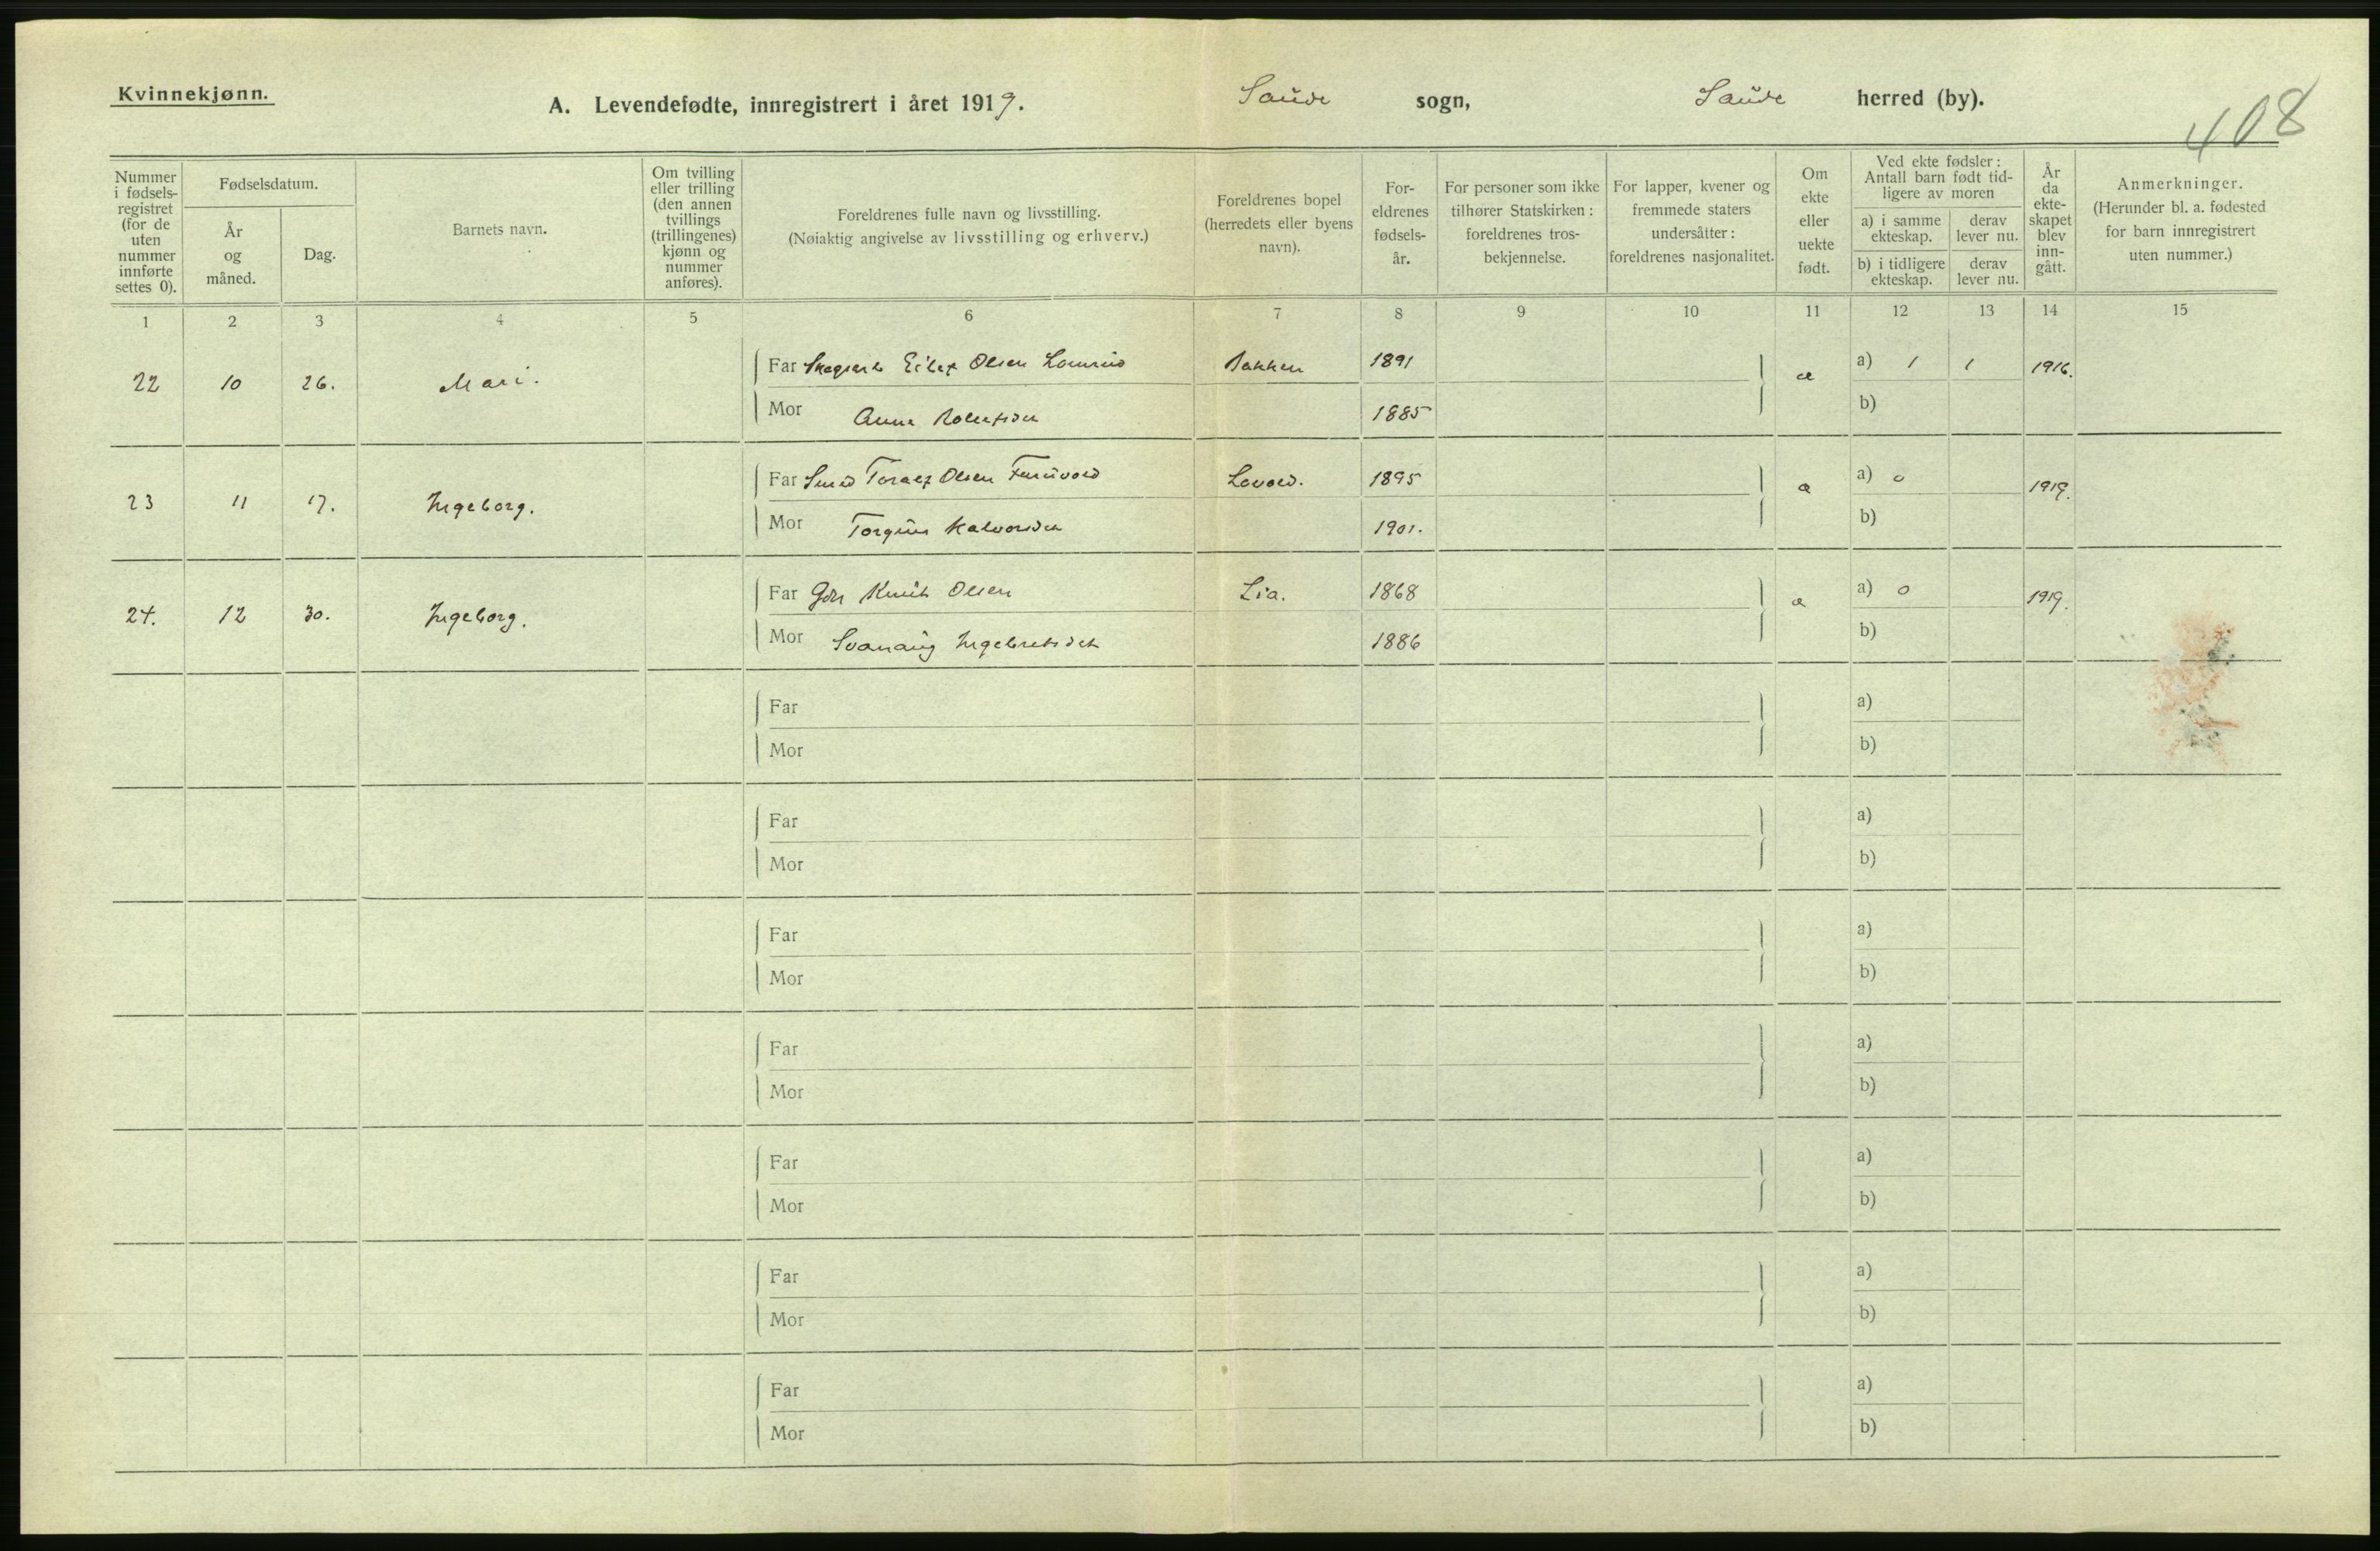 Kvinnekjønn.
A. Levendefødte, innregistrert i året 1919. Saude sogn, Saude herred (by).
408
Nummer i fødselsregistret (for de uten nummer innførte settes 0).
Fødselsdatum.
År og måned.
Dag.
Barnets navn.
Om tvilling eller trilling (den annen tvillings (trillingenes) kjønn og nummer anføres).
Foreldrenes fulle navn og livsstilling.
(Nøiaktig angivelse av livsstilling og erhverv.)
Foreldrenes bopel (herredets eller byens navn).
Foreldrenes fødselsår.
For personer som ikke tilhører Statskirken: foreldrenes trosbekjennelse.
For lapper, kvener og fremmede staters undersåtter: foreldrenes nasjonalitet.
Om ekte eller uekte født.
Ved ekte fødsler: Antall barn født tidligere av moren
a) i samme ekteskap.
derav lever nu.
b) i tidligere ekteskap.
derav lever nu.
År da ekteskapet blev inngått.
Anmerkninger.
(Herunder bl. a. fødested for barn innregistrert uten nummer.)
1 2 3 4 5 6 7 8 9 10 11 12 13 14 15
22 10 26. Mari. Far Eilef Olsen Bakken 1891 æ a) 1 1 1916.
Mor Anna 1885 b)
23 11 17. Ingeborg. Far Smed Toralf Olsen Furuvold Lovold. 1895 a) 0 1919.
Mor Torgun Halvorsdtr 1901. b)
24. 12 30. Ingeborg. Far Gbr Knut Olsen Lia. 1868 a) 0 1919.
Mor Svanaug Ingebretsdtr 1886 b)
Far a)
Mor b)
Far a)
Mor b)
Far a)
Mor b)
Far a)
Mor b)
Far a)
Mor b)
Far a)
Mor b)
Far a)
Mor b)